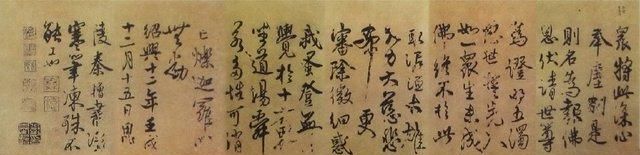 眾將此深心
奉塵剎是
則名為報佛
恩伏請世尊
為證明五濁
惡世誓先入
如一眾生未成
佛終不於此
取泥洹大雄
大力大慈悲
希更
審除微細惑
我蚤登無上
覺於十方界
坐道場舜
若多性可消
亡爍迦羅心
無動
紹興十二年壬戌
十二月十五日思
陵秦檜書
寒筆凍殊不
能工也